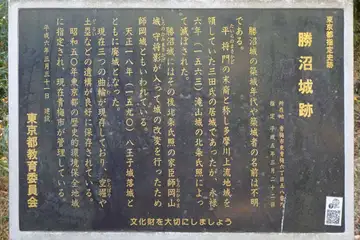 東京都指定史跡
勝沼城跡
指定 平成五年三月二十二日
勝沼城の築城年代や築城者の名前は不明
である。
将門の末裔と称し多摩川上流地域を
領していた三田氏の居城であったが、永禄
六年(一五六三)滝山城の北条氏照によっ
て滅ぼされた。
勝沼城にはその後北条氏照の家臣師岡山
城守将影が入って城の改変を行ったため
師岡城ともいわれている。
天正一八年(一五九〇)八王子城落城と
ともに廃城となった。
現在三つの曲輪が現存しており、空堀や
土塁などの遺構が良好に保存されている。
昭和五〇年東京都の歴史的環境保全地域
に指定され、現在青梅市が管理している。
平成六年三月三十一日 建設
東京都教育委員会
文化財を大切にしましょう